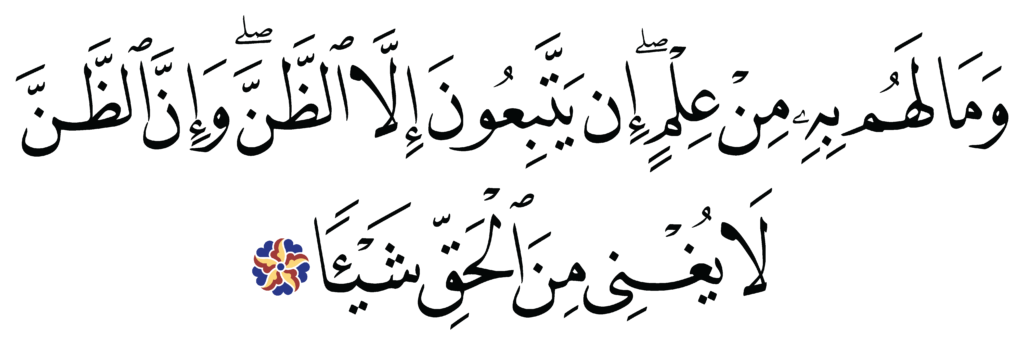 وَمَا لَهُم بِهِۦ مِنْ عِلْمٍ ۖ إِن يَتَّبِعُونَ إِلَّا ٱلظَّنَّ ۖ وَإِنَّ ٱلظَّنَّ
لَا يُغْنِى مِنَ ٱلْحَقِّ شَيْـًٔا